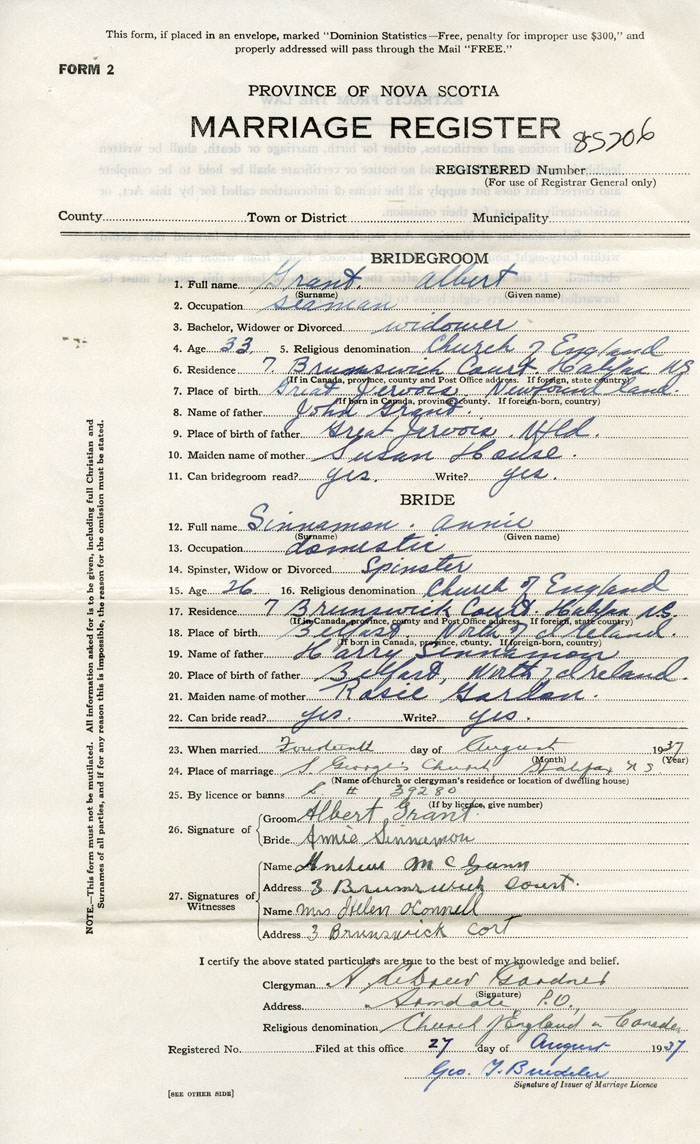 This form, if placed in an envelope, marked "Dominion Statistics—Free, penalty for improper use $300," and
properly addressed will pass through the Mail "FREE."
FORM 2
PROVINCE OF NOVA SCOTIA
MARRIAGE REGISTER
85206
REGISTERED Number
(For use of Registrar General only)
County Town or District Municipality
BRIDEGROOM
1. Full name Grant. Albert
(Surname) (Given name)
2. Occupation seaman
3. Bachelor, Widower or Divorced widower
4. Age 33 5. Religious denomination Church of England
6. Residence 7. Brunswick Court. Halifax N.S
(If in Canada, province, county and Post Office address. If foreign, state country)
7. Place of birth Great Jervois, Newfound land.
(If born in Canada, province, county. If foreign-born, country)
8. Name of father John Grant.
9. Place of birth of father Great Jervois. Nfld.
10. Maiden name of mother Susan House.
11. Can bridegroom read? yes. Write? yes.
BRIDE
12. Full name Sinnamon. Annie
(Surname) (Given name)
13. Occupation domestic
14. Spinster, Widow or Divorced Spinster
15. Age 26 16. Religious denomination Church of England
17. Residence 7 Brunswick Court. Halifax N.S.
(If in Canada, province, county and Post Office address. If foreign, state country)
18. Place of birth Belfast, North of Ireland.
(If born in Canada, province, county. If foreign-born, country)
19. Name of father Harry Sinnamon
20. Place of birth of father Belfast, North Ireland.
21. Maiden name of mother Rosie Gordon.
22. Can bride read? yes. Write? yes.
23. When married Fourteenth day of August 1937
(Month) (Year)
24. Place of marriage S. George's Church Halifax N S
(Name of church or clergyman's residence or location of dwelling house)
25. By licence or banns L # 39280
(If by licence, give number)
26. Signature of
Groom Albert Grant.
Bride Annie Sinnamon
27. Signatures of Witnesses
Name Andrew McGunn
Address 3 Brunswick Court.
Name Mrs Helen OConnell
Address 3 Brunswick Cort
I certify the above stated particulars are true to the best of my knowledge and belief.
Clergyman Gardner
(Signature)
Address Armdale P.O.
Religious denomination Church of England in Canada
Registered No. Filed at this office 27 day of August 1937
Geo.
Signature of Issuer of Marriage Licence
[SEE OTHER SIDE]
NOTE.—This form must not be mutilated. All information asked for is to be given, including full Christian and
Surnames of all parties, and if for any reason this is impossible, the reason for the omission must be stated.